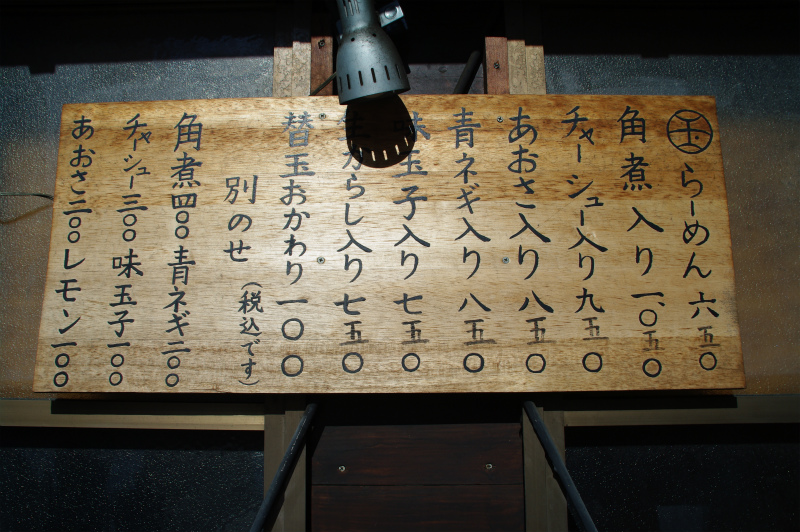 玉らーめん 六五〇
角煮入り 一、〇五〇
チャーシュー入り 九五〇
あおさ入り 八五〇
青ネギ入り 八五〇
味玉子入り 七五〇
からし入り 七五〇
替玉おかわり 一〇〇
別のせ (税込です)
角煮四〇〇 青ネギ二〇〇
チャーシュー三〇〇 味玉子一〇〇
あおさ二〇〇 レモン一〇〇